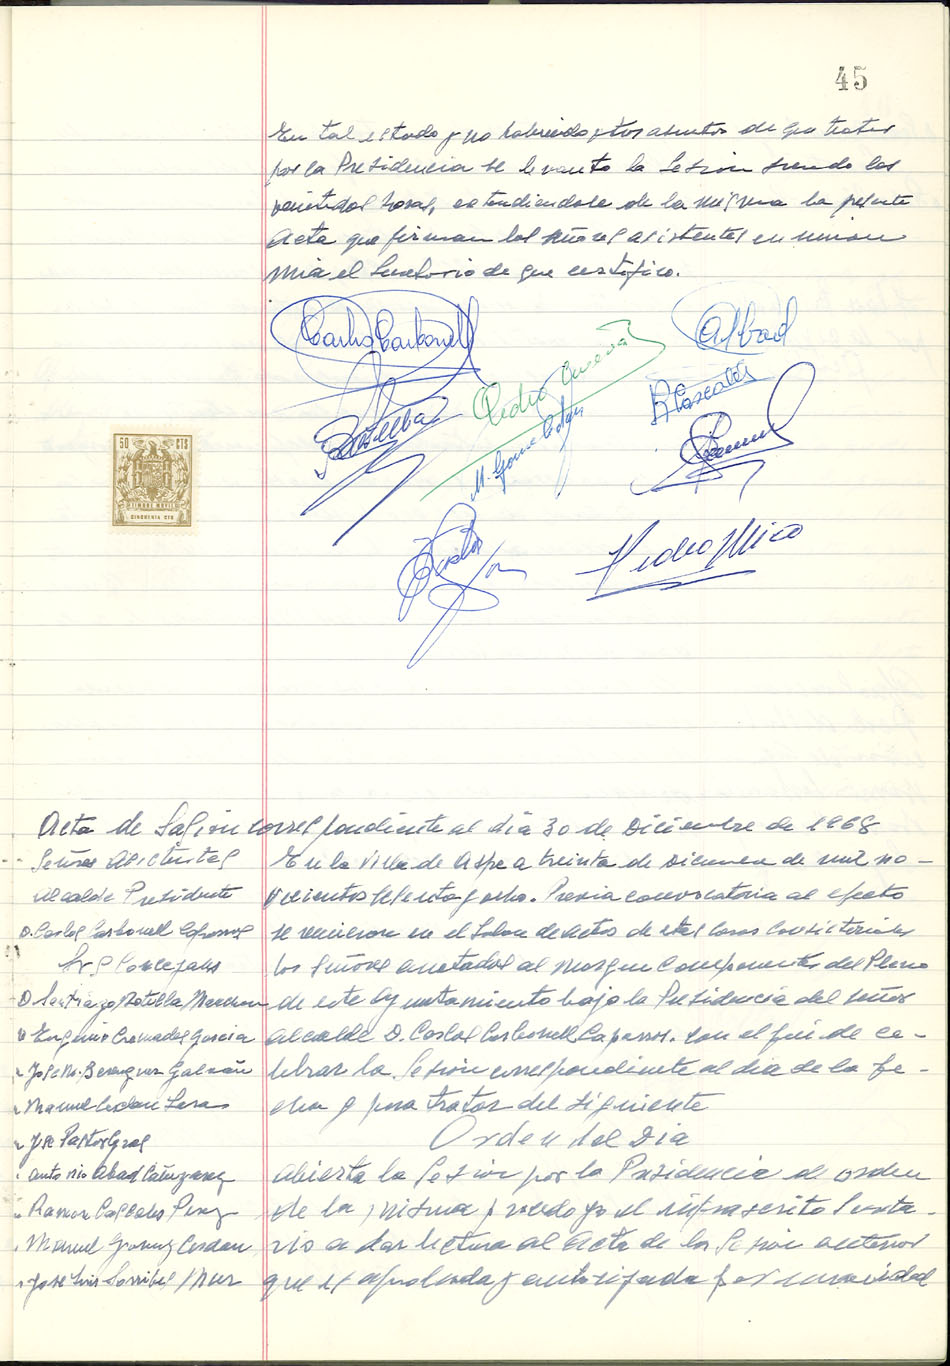 45
En tal estado y no habiendo otros asuntos de que tratar
por la Presidencia se levanto la Sesion siendo las
veintidos horas, extendiendose de la misma la presente
Acta que firman los señores asistentes en union
mia el Secretario de que certifico.
Carlos Carbonell
Abad
Pedro Cuevas
R Cascales
Botella
M. Gomez Cerdan
Pastor
Pedro Mico
50 CTS
TIMBRE MOVIL
CINCUENTA CTS
Acta de Sesion correspondiente al dia 30 de Diciembre de 1968
Señores Asistentes
Alcalde Presidente
D. Carlos Carbonell Caparros
Srs Concejales
D. Santiago Botella
" Eugenio Cremades Garcia
" Jose M. Berenguer Galvañ
" Manuel Cerdan
" Jose Pastor Gras
" Antonio Abad Cañizares
" Ramon Cascales Perez
" Manuel Gomez Cerdan
" Jose Luis Mur
En la Villa de Aspe a treinta de Diciembre de mil no-
vecientos sesenta y ocho. Previa convocatoria al efecto
se reunieron en el Salon de actos de estas Casas Consistoriales
los Señores anotados al margen Componentes del Pleno
de este Ayuntamiento bajo la Presidencia del señor
Alcalde D. Carlos Carbonell Caparros. con el fin de ce-
lebrar la Sesion correspondiente al dia de la fe-
cha y para tratar del siguiente
Orden del Dia
Abierta la Sesion por la Presidencia de orden
de la misma procedo yo el infrascrito Secreta-
rio a dar lectura al Acta de la Sesion anterior
que es aprobada y autorizada por unanimidad